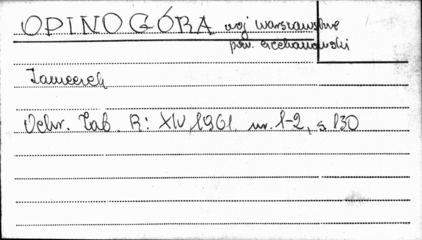 OPINOGÓRA woj warszawskie
pow. ciechanowski
Zameczek
Ochr. Zab. R: XIV, 1961 nr. 1-2, s. 130